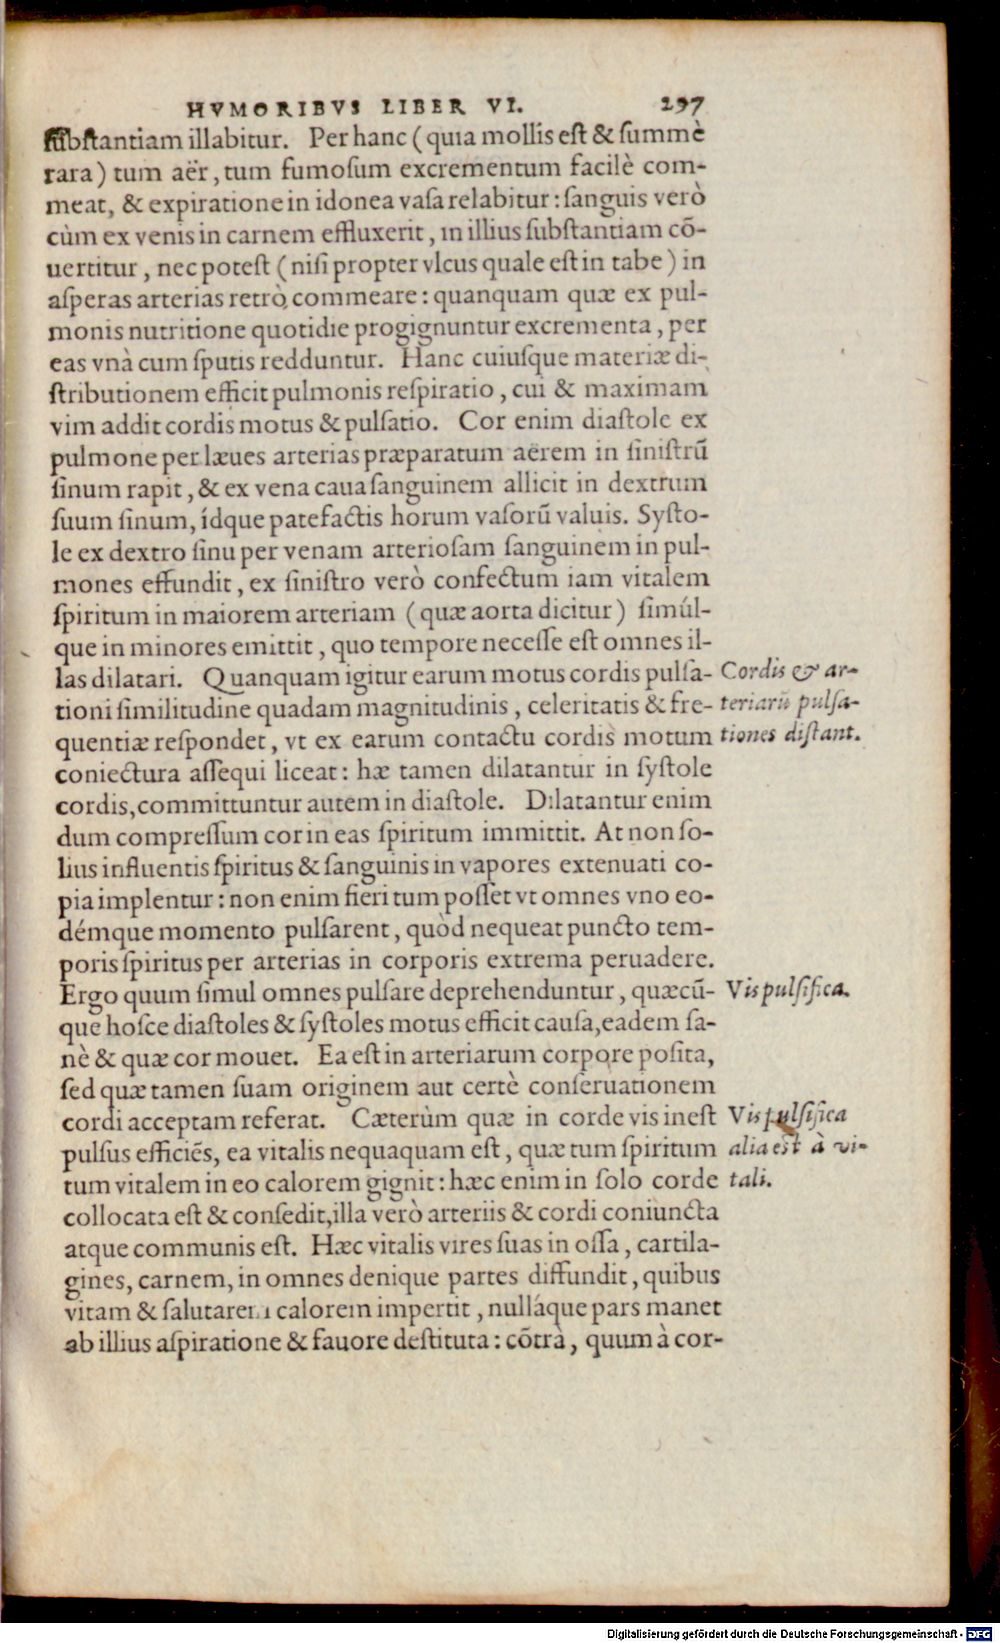 HVMORIBVS LIBER VI. 297
ſubſtantiam illabitur. Per hanc (quia mollis eſt & ſummè
rara) tum aër, tum fumoſum excrementum facilè com-
meat, & expiratione in idonea vaſa relabitur: ſanguis verò
cùm ex venis in carnem effluxerit, in illius ſubſtantiam cō-
uertitur, nec poteſt (niſi propter vlcus quale eſt in tabe) in
aſperas arterias retrò commeare: quanquam quæ ex pul-
monis nutritione quotidie progignuntur excrementa, per
eas vnà cum ſputis redduntur. Hanc cuiuſque materiæ di-
ſtributionem efficit pulmonis reſpiratio, cui & maximam
vim addit cordis motus & pulſatio. Cor enim diaſtole ex
pulmone per læues arterias præparatum aërem in ſiniſtrū
ſinum rapit, & ex vena caua ſanguinem allicit in dextrum
ſuum ſinum, ídque patefactis horum vaſorū valuis. Syſto-
le ex dextro ſinu per venam arterioſam ſanguinem in pul-
mones effundit, ex ſiniſtro verò confectum iam vitalem
ſpiritum in maiorem arteriam (quæ aorta dicitur) ſimúl-
que in minores emittit, quo tempore neceſſe eſt omnes il-
las dilatari. Quanquam igitur earum motus cordis pulſa-
tioni ſimilitudine quadam magnitudinis, celeritatis & fre-
quentiæ reſpondet, vt ex earum contactu cordis motum
coniectura aſſequi liceat: hæ tamen dilatantur in ſyſtole
cordis, committuntur autem in diaſtole. Dilatantur enim
dum compreſſum cor in eas ſpiritum immittit. At non ſo-
lius influentis ſpiritus & ſanguinis in vapores extenuati co-
pia implentur: non enim fieri tum poſſet vt omnes vno eo-
démque momento pulſarent, quòd nequeat puncto tem-
poris ſpiritus per arterias in corporis extrema peruadere.
Ergo quum ſimul omnes pulſare deprehenduntur, quæcū-
que hoſce diaſtoles & ſyſtoles motus efficit cauſa, eadem ſa-
nè & quæ cor mouet. Ea eſt in arteriarum corpore poſita,
ſed quæ tamen ſuam originem aut certè conſeruationem
cordi acceptam referat. Cæterùm quæ in corde vis ineſt
pulſus efficiēs, ea vitalis nequaquam eſt, quæ tum ſpiritum
tum vitalem in eo calorem gignit: hæc enim in ſolo corde
collocata eſt & conſedit, illa verò arteriis & cordi coniuncta
atque communis eſt. Hæc vitalis vires ſuas in oſſa, cartila-
gines, carnem, in omnes denique partes diffundit, quibus
vitam & ſalutarem calorem impertit, nulláque pars manet
ab illius aſpiratione & fauore deſtituta: cōtrà, quum à cor-
Cordis & ar-
teriarū pulſa-
tiones diſtant.
Vis pulſifica.
Vis pulſifica
alia est à vi-
tali.
Digitalisierung gefördert durch die Deutsche Forschungsgemeinschaft - DFG